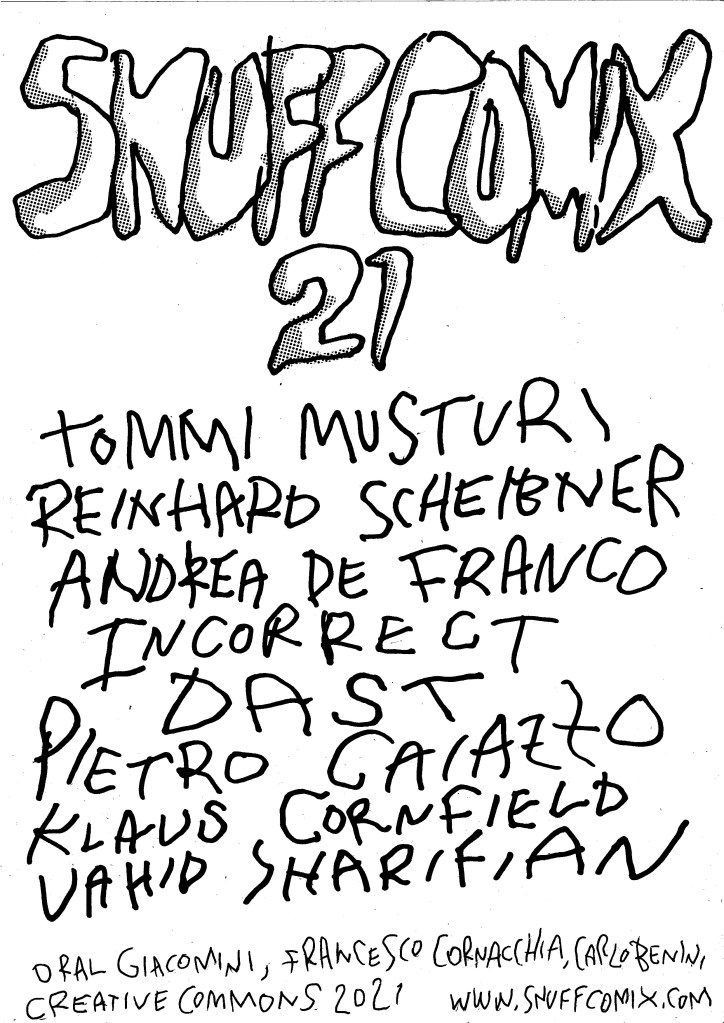 SNUFF COMIX
21
TOMMI MUSTURI
REINHARD SCHEIBNER
ANDREA DE FRANCO
INCORRECT
DAST
PIETRO CAIAZZO
KLAUS CORNFIELD
VAHID SHARIFIAN
ORAL GIACOMINI, FRANCESCO CORNACCHIA, CARLO BENINI,
CREATIVE COMMONS 2021 WWW.SNUFFCOMIX.COM